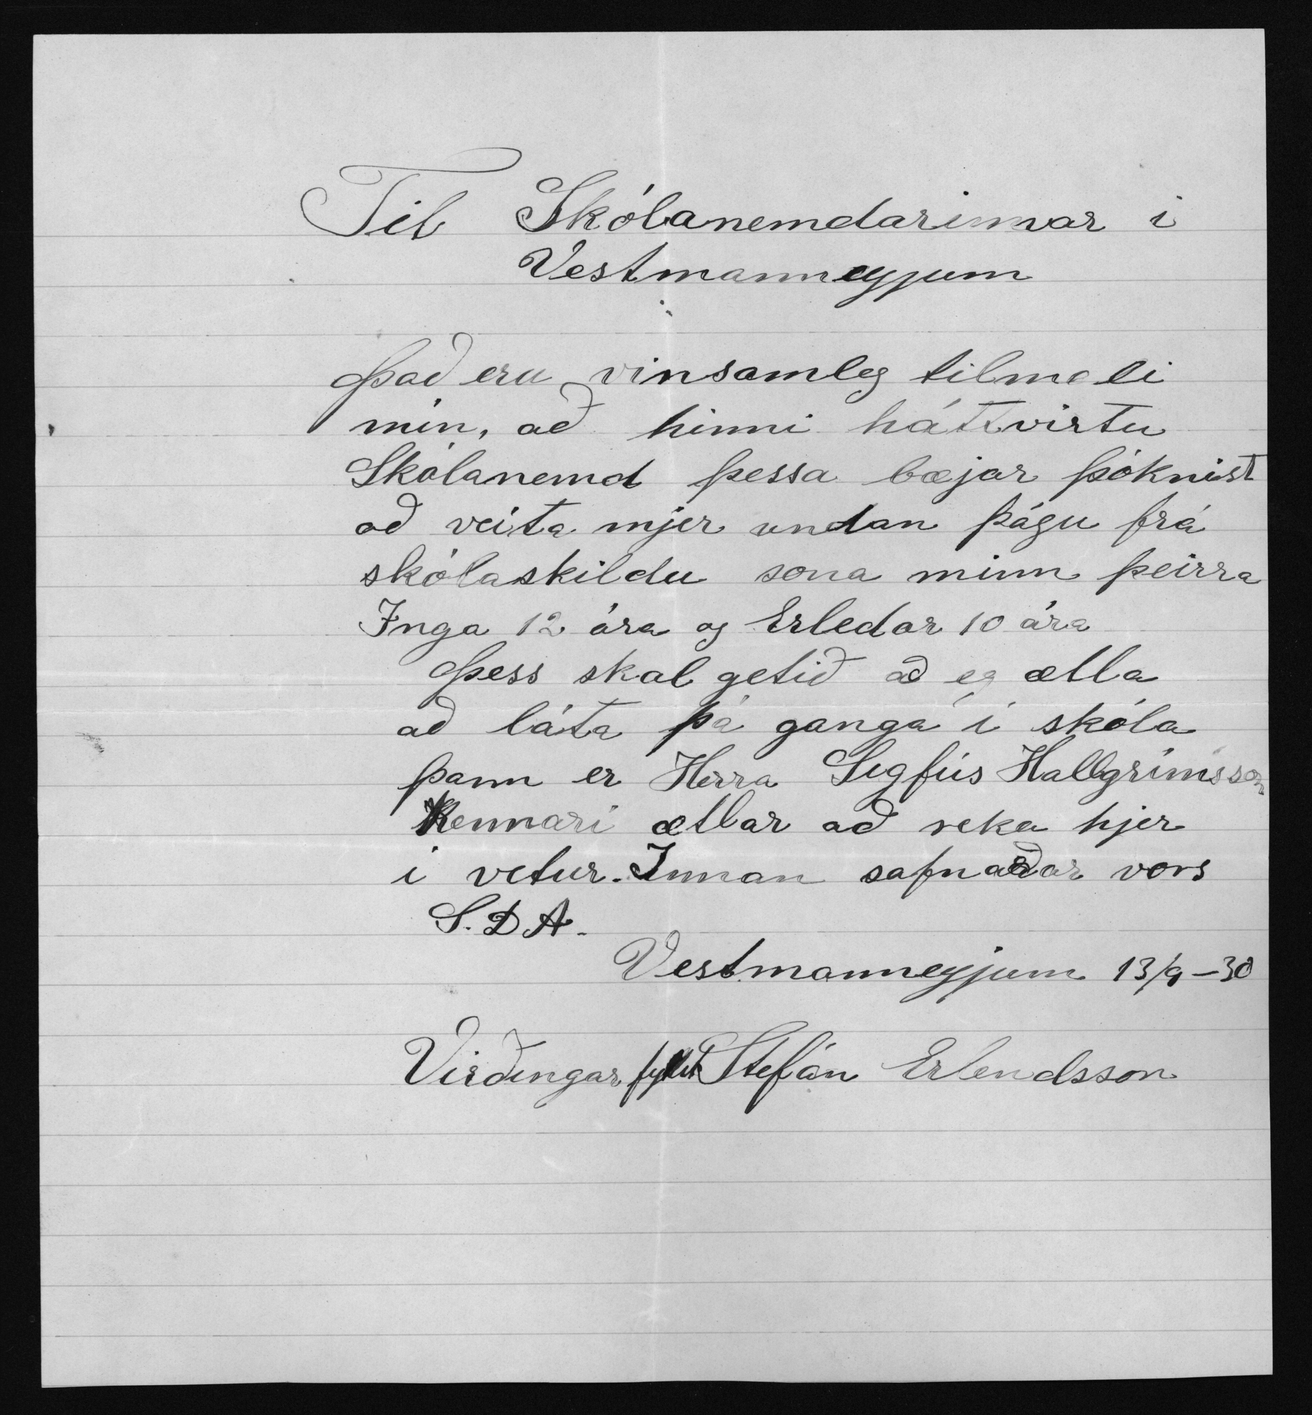 Til Skólanemdarinnar i
Vestmanneyjum
Það eru vinsamleg tilmæli
min, að hinni háttvirtu
Skólanemd þessa bæjar þóknist
að veita mjer undan þágu frá
skólaskildu sona minn þeirra
Inga 12 ára og Erledar 10 ára
Þess skal getið að eg ælla
að láta þá ganga í skóla
þann er Herra Sigfús Hallgrímsson
Kennari ætlar að reka hjer
i vetur. Innan safnaðar vors
S.D.A.
Vestmanneyjum 13/9-30
Virðingar fyllst Stefán Erlendsson